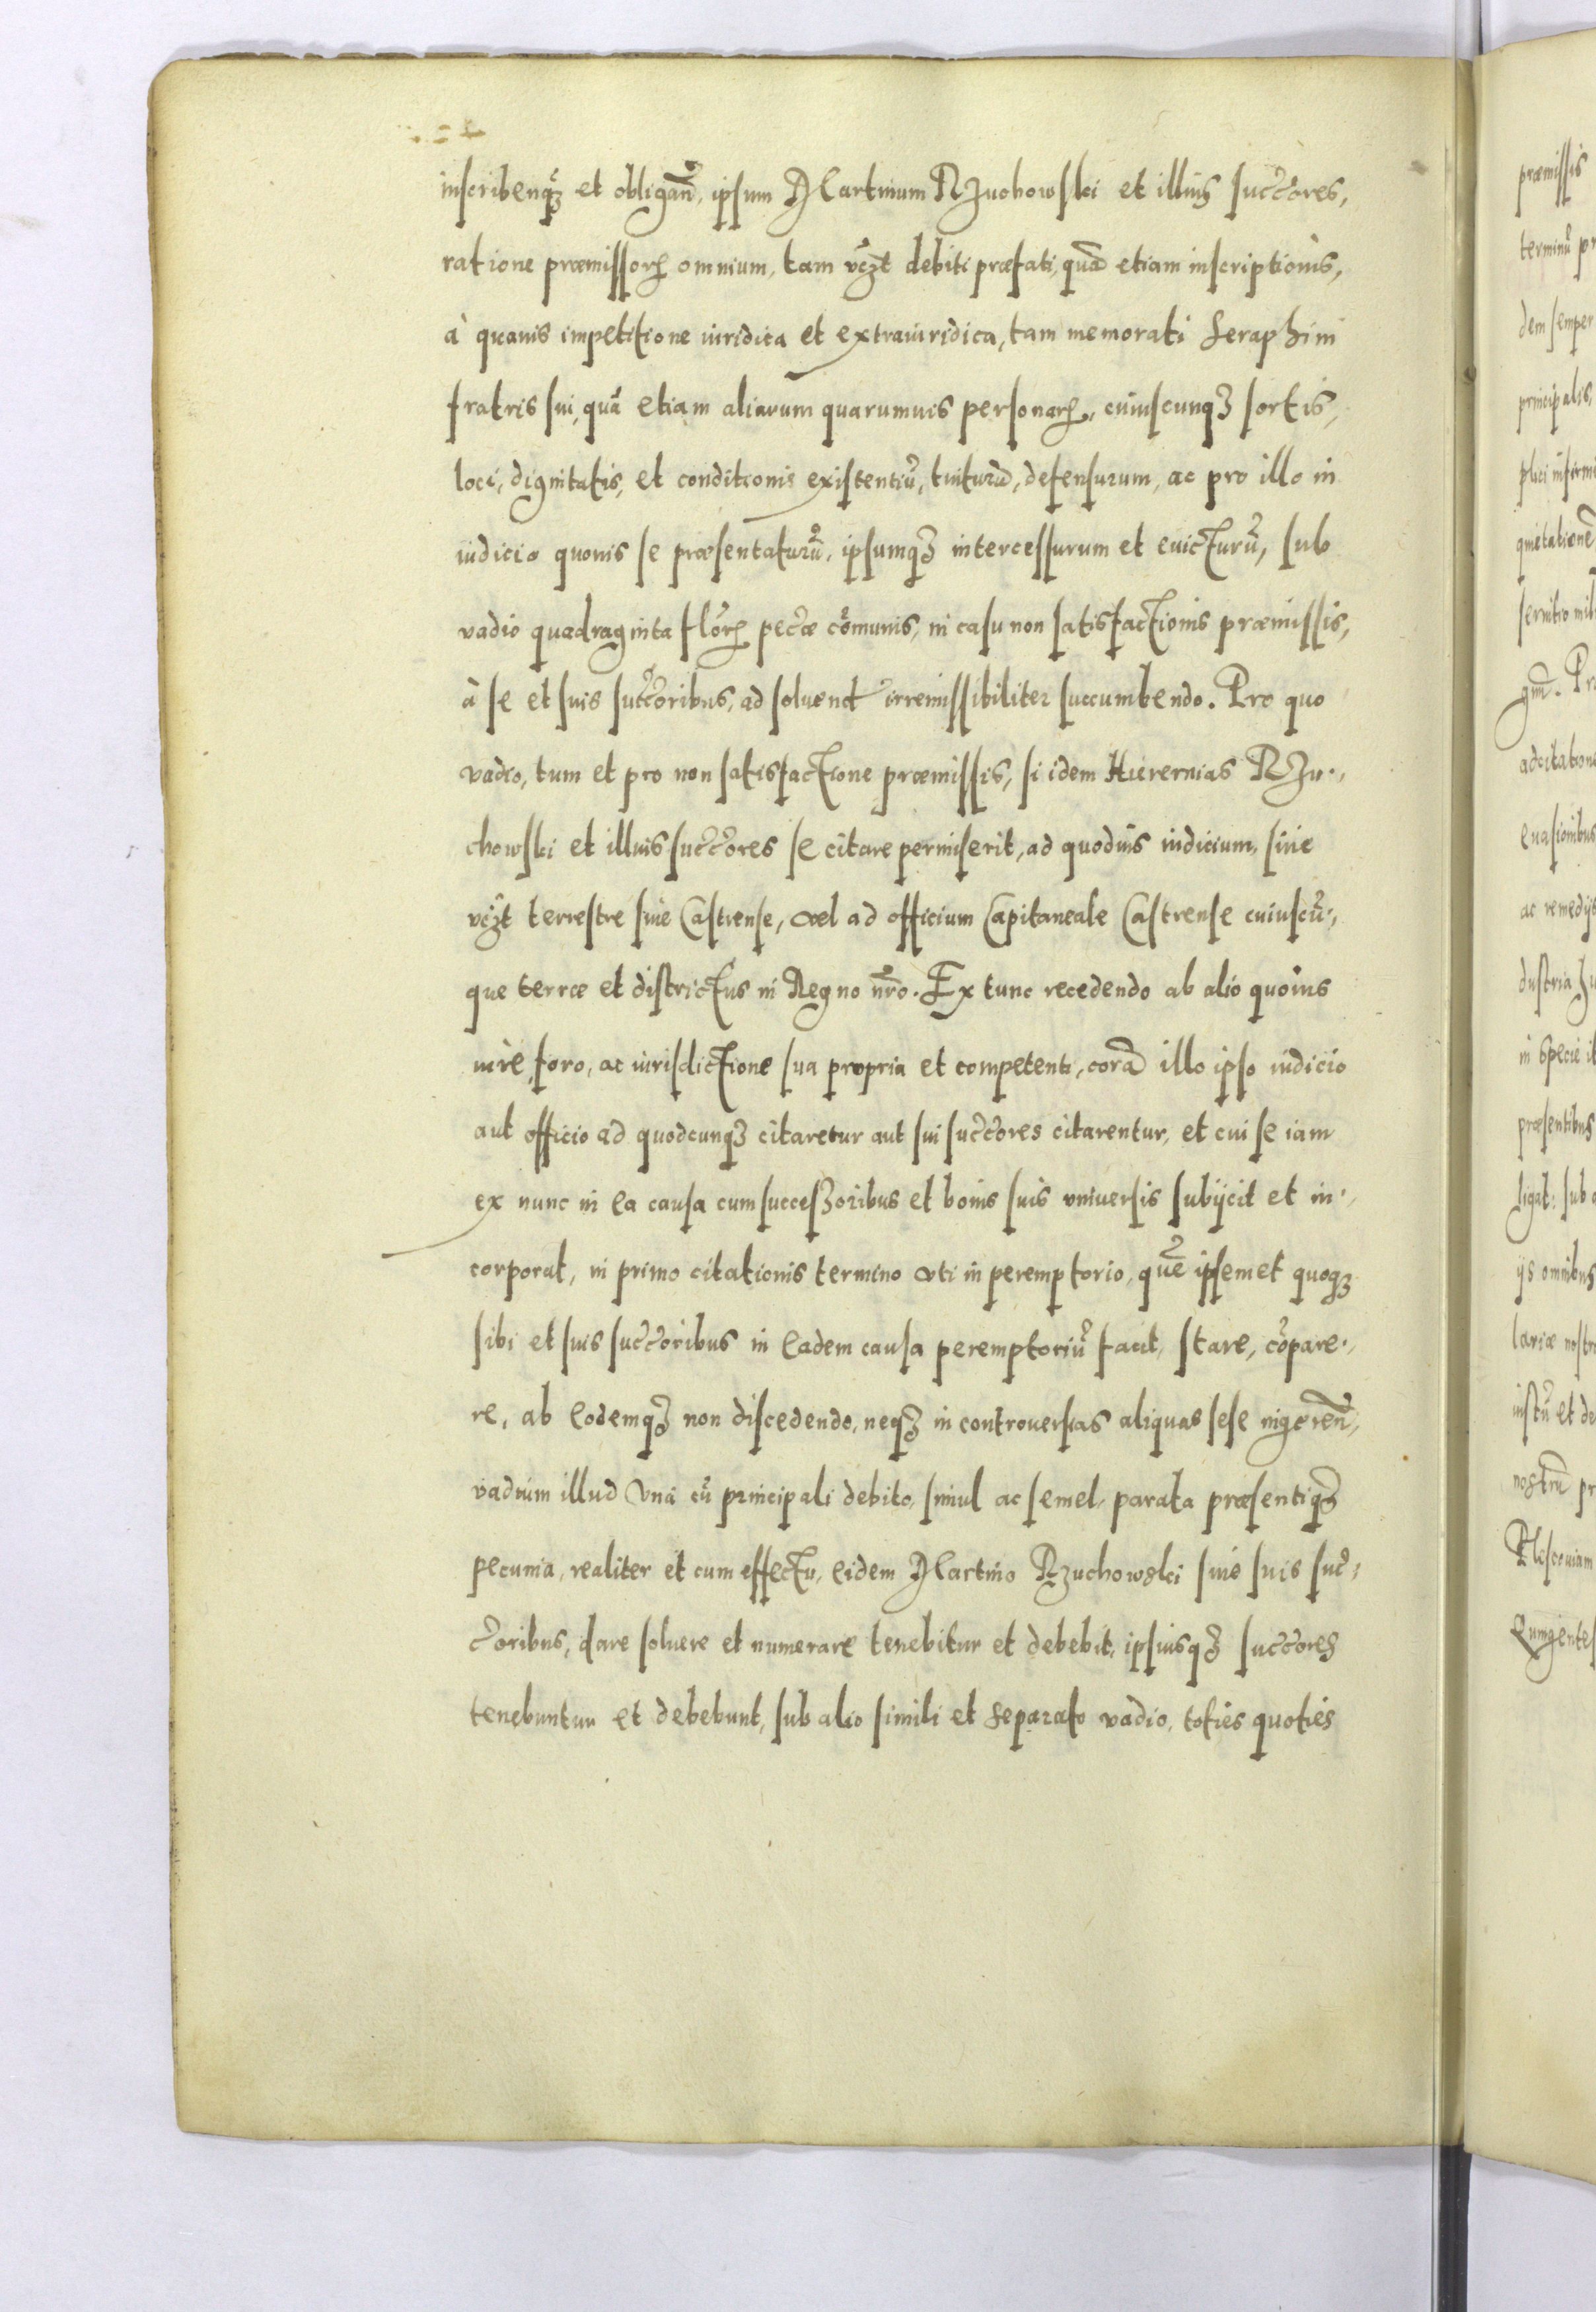 inscribenqꝫ et obligan̄, ipsum Martinum Rzuchowski et illius succ̄ores,
ratione præmissorꝝ omnium, tam vꝫt debiti præfati, quā etiam inscriptionis,
à quauis impetitione iuridica et extraiuridica, tam memorati Seraphini
fratris sui, quā etiam aliarum quarumuis personarꝝ, cuiuscunqꝫ sortis,
loci, dignitatis, et conditionis existentiū, tuiturū, defensurum, ac pro illo in
iudicio quouis se præsentaturū, ipsumqꝫ intercessurum et euicturū, sub
vadio quadraginta flōrꝝ pec̄æ cōmunis, in casu non satisfactionis præmissis,
à se et suis succ̄oribus, ad soluend irremissibiliter succumbendo. Pro quo
vadio, tum et pro non satisfactione præmissis, si idem Hieremias Rzu-
chowski et illius succ̄ores se citare permiserit, ad quoduis iudicium, siue
vꝫt terrestre siue Castrense, vel ad officium Capitaneale Castrense cuiuscū-
que terræ et districtus in Regno nr̄o. Ex tunc recedendo ab alio quouis
iure, foro, ac iurisdictione sua propria et competenti, corā illo ipso iudicio
aut officio ad quodcunqꝫ citaretur aut sui succ̄ores citarentur, et cui se iam
ex nunc in ea causa cum successoribus et bonis suis vniuersis subijcit et in-
corporat, in primo citationis termino vti in peremptorio, quē ipsemet quoqꝫ
sibi et suis succ̄oribus in eadem causa peremptoriū facit, stare, cōpare-
re, ab eodemqꝫ non discedendo, neqꝫ in controuersias aliquas sese ingeren̄,
vadium illud vnà cū principali debito, simul ac semel, parata præsentiqꝫ
pecunia, realiter et cum effectu, eidem Martino Rzuchowski siue suis suc-
c̄oribus, dare soluere et numerare tenebitur et debebit, ipsiusqꝫ succ̄ores
tenebuntur et debebunt, sub alio simili et separato vadio, toties quoties
præmissis
dem semper
principalis,
quietationē
præsentibus
ijs omnibus